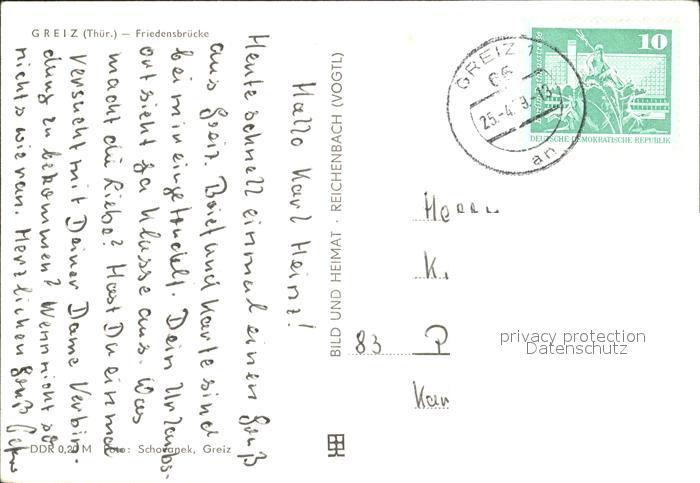 GREIZ (Thür.) — Friedensbrücke
Hallo Karl Heinz!
Heute schnell einmal einen Gruß
aus Greiz. Brief und Karte sind
bei mir eingetrudelt. Dein Urlaubs-
ort sieht ja Klasse aus. Was
macht die Liebe? Hast Du einmal
versucht mit Deiner Dame Verbin-
dung zu bekommen? Wenn nicht so
nichts wie ran. Herzlichen Gruß
DDR 0,20 M Foto: Schovanek, Greiz
BILD UND HEIMAT · REICHENBACH (VOGTL)
GREIZ 1
66
25.-4.
an
10
DEUTSCHE DEMOKRATISCHE REPUBLIK
Herrn
K.
83 P
Kar
privacy protection
Datenschutz